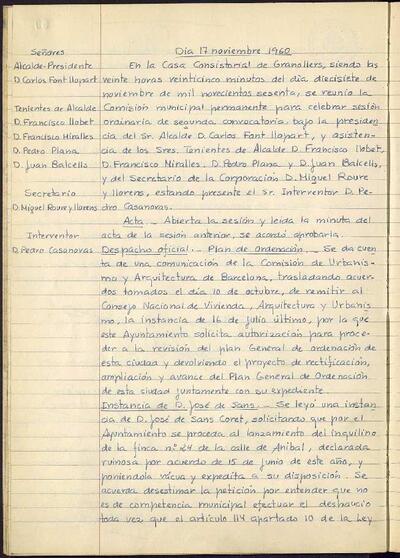 Señores
Alcalde-Presidente
D. Carlos Font Llopart
Tenientes de Alcalde
D. Francisco Llobet
D. Francisco Miralles
D. Pedro Plana
D. Juan Balcells
Secretario
D. Miguel Roure y Llorens
Interventor
D. Pedro Casanovas
Día 17 noviembre 1960
En la Casa Consistorial de Granollers, siendo las
veinte horas veinticinco minutos del día diecisiete de
noviembre de mil novecientos sesenta, se reunió la
Comisión municipal permanente para celebrar sesión
ordinaria de segunda convocatoria bajo la presiden
cia del Sr. Alcalde D. Carlos Font Llopart, y asisten-
cia de los Sres. Tenientes de Alcalde D. Francisco Llobet,
D. Francisco Miralles, D. Pedro Plana y D. Juan Balcells,
y del Secretario de la Corporación D. Miguel Roure
y Llorens, estando presente el Sr. Interventor D. Pe-
dro Casanovas.
Acta.- Abierta la sesión y leída la minuta del
acta de la sesión anterior, se acordó aprobarla.
Despacho oficial.- Plan de Ordenación.- Se da cuen
ta de una comunicación de la Comisión de Urbanis-
mo y Arquitectura de Barcelona, trasladando acuer-
dos tomados el día 10 de octubre, de remitir al
Consejo Nacional de Vivienda, Arquitectura y Urbanis
mo, la instancia de 16 de julio último, por la que
este Ayuntamiento solicita autorización para proce-
der a la revisión del plan General de ordenación de
esta ciudad y devolviendo el proyecto de rectificación,
ampliación y avance del Plan General de Ordenación
de esta ciudad juntamente con su expediente.
Instancia de D. José de Sans.- Se leyó una instan
cia de D. José de Sans Coret, solicitando que por el
Ayuntamiento se proceda al lanzamiento del inquilino
de la finca nº 24 de la calle de Anibal, declarada
ruinosa por acuerdo de 15 de junio de este año, y
poniendola vácua y expedita a su disposición. Se
acuerda desestimar la petición por entender que no
es de competencia municipal efectuar el desahucio
toda vez que el artículo 114 apartado 10 de la Ley